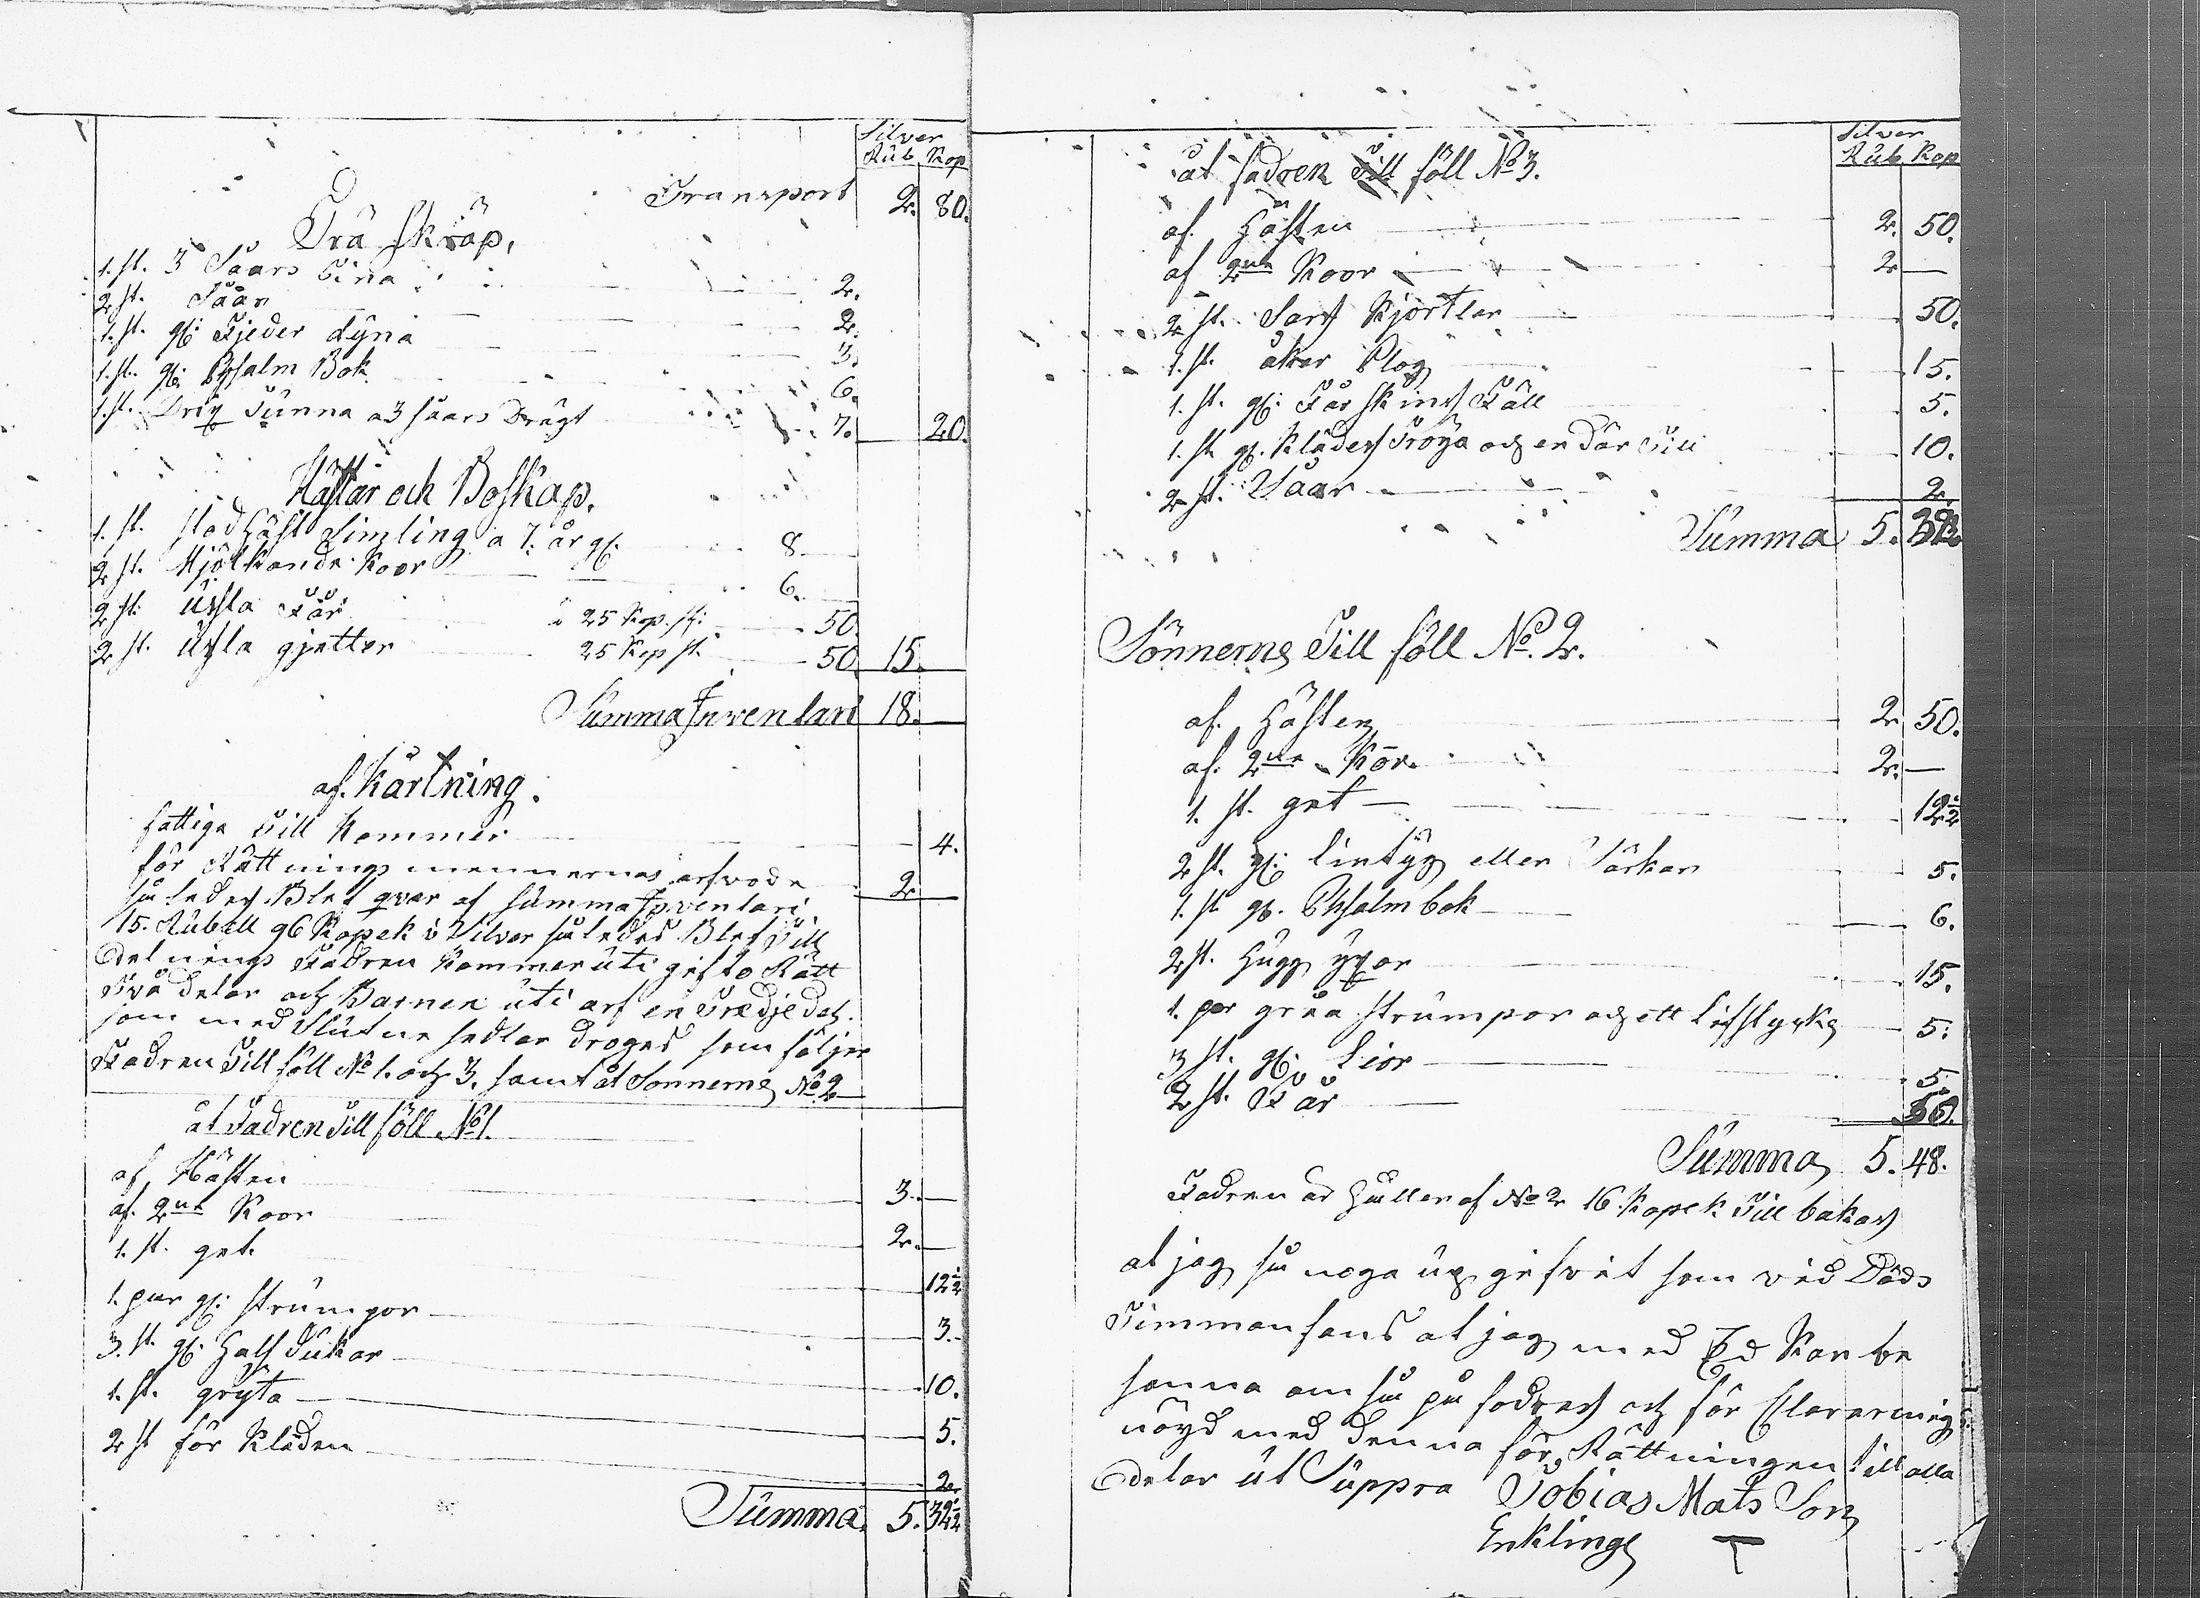 Silver
Rub Kop
Transport 2. 80.
Trä skräp.
1. st. 3 Såars Tina 2.
2 st. Såar 2.
1. st. gl: Fjeder dyna 3.
1. st. gl: Psalm Bok 6.
1. st. Tunna a 3 såars Drägt 7. 20.
Hästar och Boskap.
1. st. stod häst Simling a 7. år gl. 8
2 st. Mjölkande Koor 6.
2 st. Usla Får a 25 Kop. st: 50
2 st. Usla gjetter 25 Kop st. 50 15.
Summa Invenlari 18.
af. Kartning.
fattiga Till Kommer 4.
för Rättnings mennernas arfvode 2
således Blef qvar af summa Invenlari
15. Rubell 96 Kopek i Silver således Blef Till
delnings Fadren Kommer uti gifto Rätt
Två delar och Barnen uti arf en Tredje del.
som med slutne sedlar droges som följer
Fadren Till föll No 1. och 3. samt åt Sonnerne No 2
åt Fadren Till föll No 1.
af Hästen 3.
af. 2ne Koor 2.
1. st. get. 12½
1. par gl: strumpor 3.
3. st. gl: Halsdukar 10.
1. st. gryta 5.
2 st för Kläden 2.
Summa 5. 32½
Silver
Rub Kop
åt fadren Till föll No 3.
af. Hästen 2. 50.
af 2ne Koor 2
2 st. Sars Kjortlar 50.
1. st. åker Plog 15.
1. st. gl: Får skins Fäll 5.
1. st gl. Klädes Tröya och en där Till 10.
2 st. Såar 2.
Summa 5. 32.
Sönnerne Till föll No. 2.
af. Hästen 2 50.
af. 2ne Kor. 2.
1. st. get 12½
2 st. gl: lintyg eller Särkar 5.
1. st gl. Psalm bok 6.
2 st. Hugg yxor 15.
1. par gråa strumpor och ett lifstycke 5.
3 st. gl. Lior 5.
2 st. Får 50.
Summa 5. 48.
Fadren ärhåller af No 2 16. Kopek Till bakas
at jag så noga up gifvit som vid Döds
Timman fans at jag med Ed Kan be
sanna om så på fodras och för Clarer mig
nöyd med denna för Rättningen till alla
delar ut Suppra Tobias Mats Son
Enkling